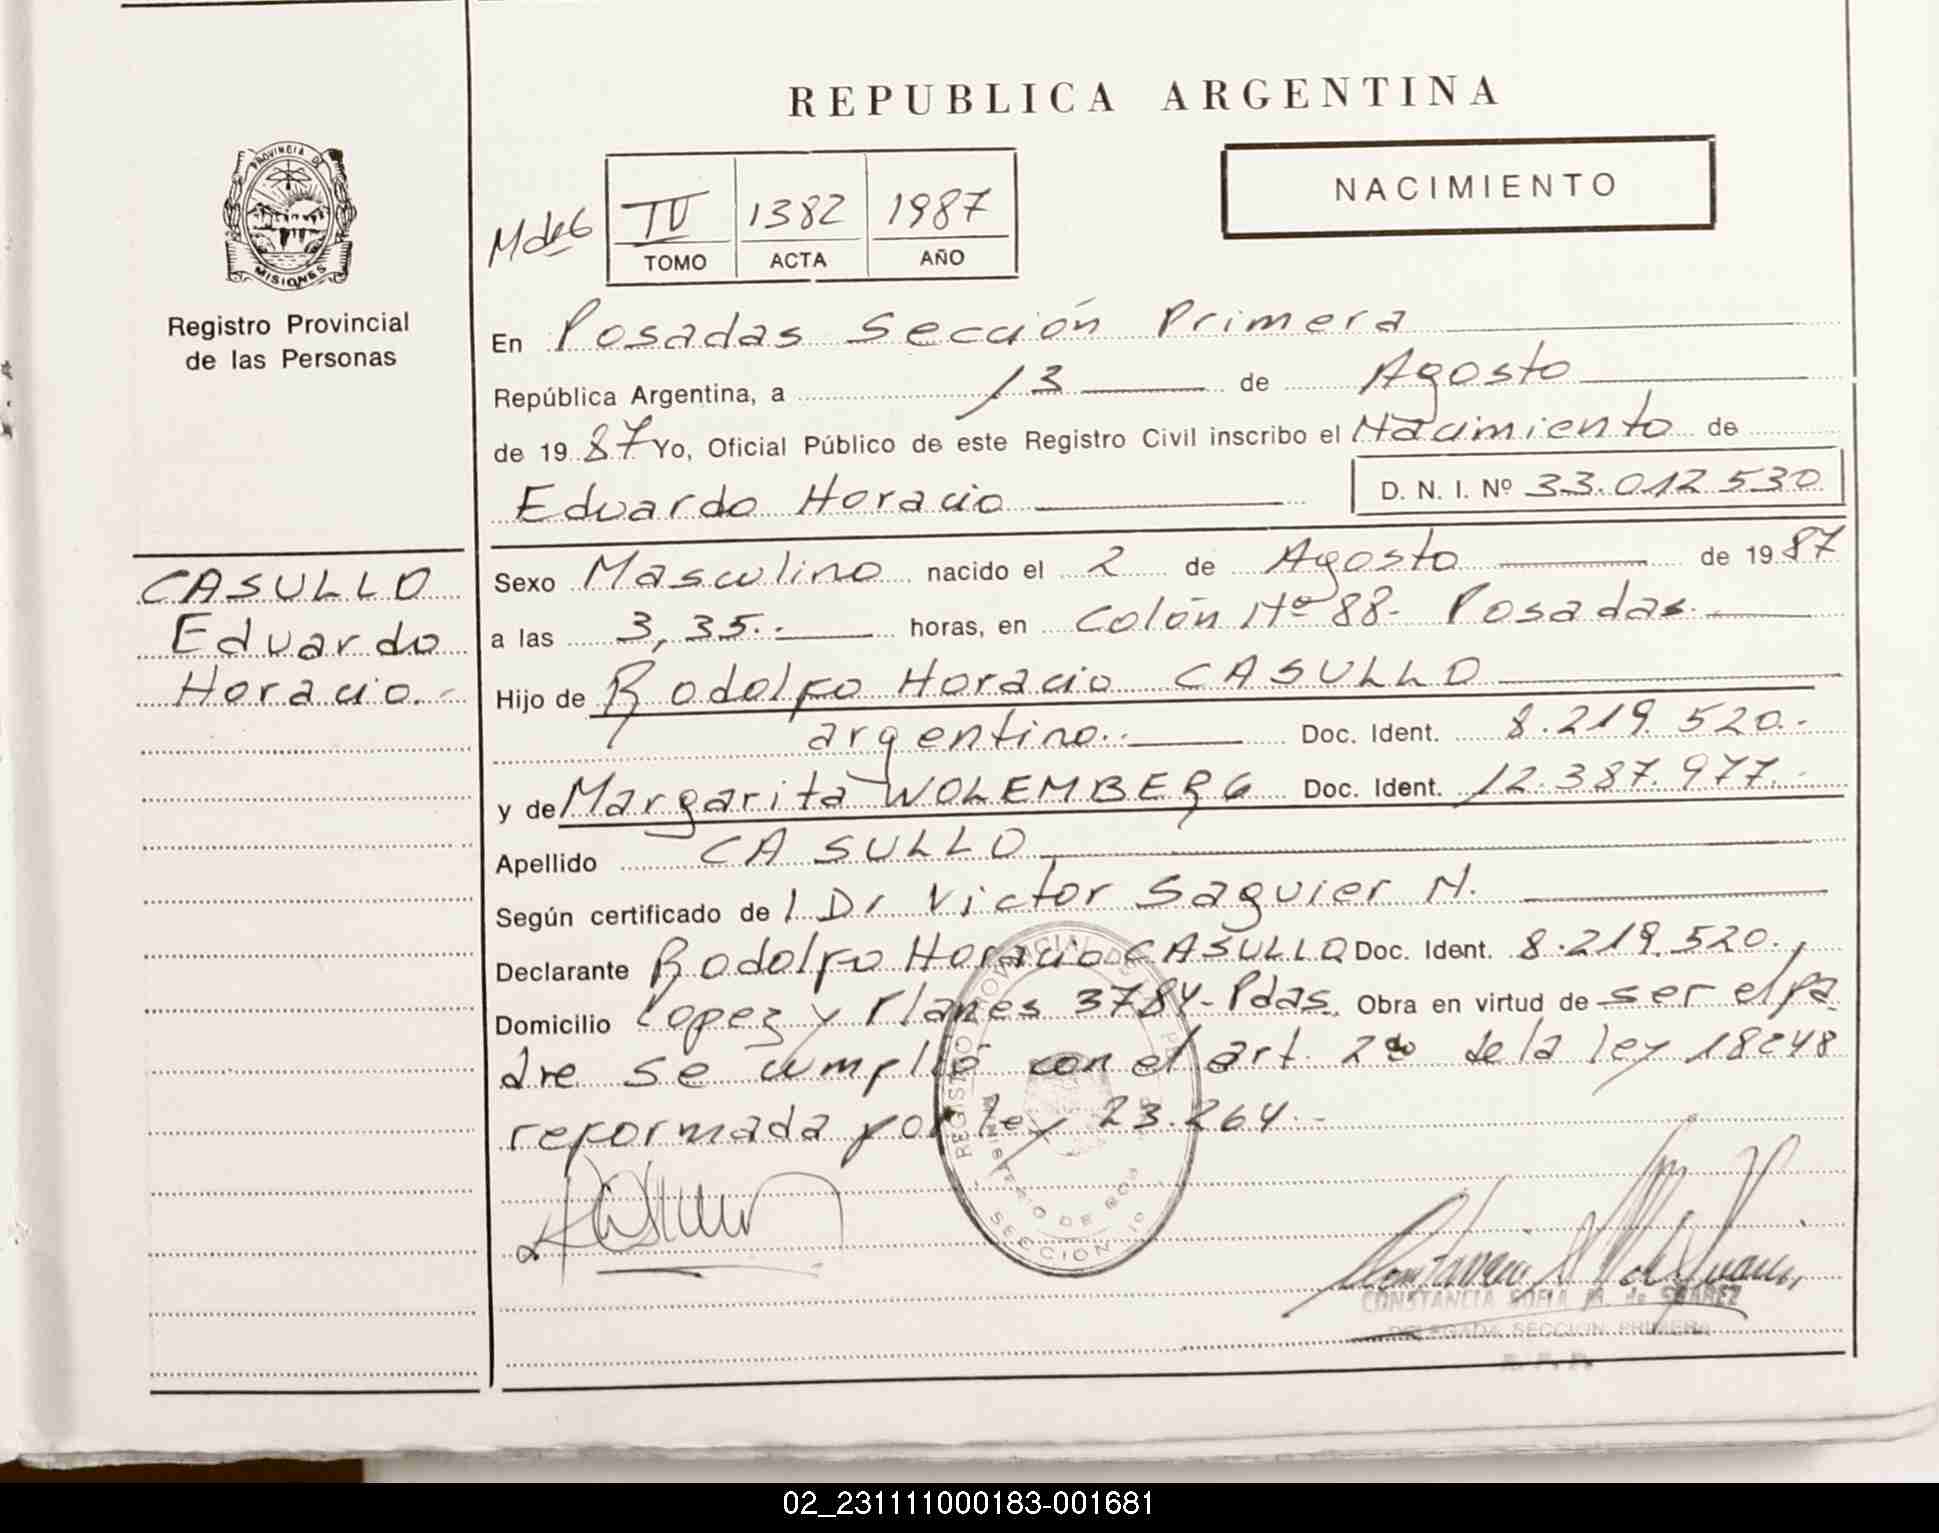 REPUBLICA ARGENTINA
PROVINCIA DE
MISIONES
Registro Provincial
de las Personas
NACIMIENTO
M de 6
IV 1382 1987
TOMO ACTA AÑO
En Posadas Sección Primera
República Argentina, a 13 de Agosto
de 19 87 Yo, Oficial Público de este Registro Civil inscribo el Nacimiento de
Eduardo Horacio D. N. I. Nº 33.012.530
CASULLO
Eduardo
Horacio.-
Sexo Masculino nacido el 2 de Agosto de 19 87
a las 3,35.- horas, en Colón Nº 88- Posadas.-
Hijo de Rodolfo Horacio CASULLO
argentino.- Doc. Ident. 8.219.520.-
y de Margarita WOLEMBERG Doc. Ident. 12.387.977.-
Apellido CASULLO
Según certificado de l Dr Victor Saguier N.
Declarante Rodolfo Horacio CASULLO Doc. Ident. 8.219.520.
Domicilio Lopez y Planes 3784-Pdas. Obra en virtud de ser el pa
dre se cumplió con el art. 2do de la ley 18248
reformada por ley 23.264.-
REGISTRO PROVINCIAL DE
MINISTERIO DE GOB
SECCION 1º
CONSTANCIA SOFIA M. de SUAREZ
DELEGADA SECCION PRIMERA
R. P. P.
02_231111000183-001681